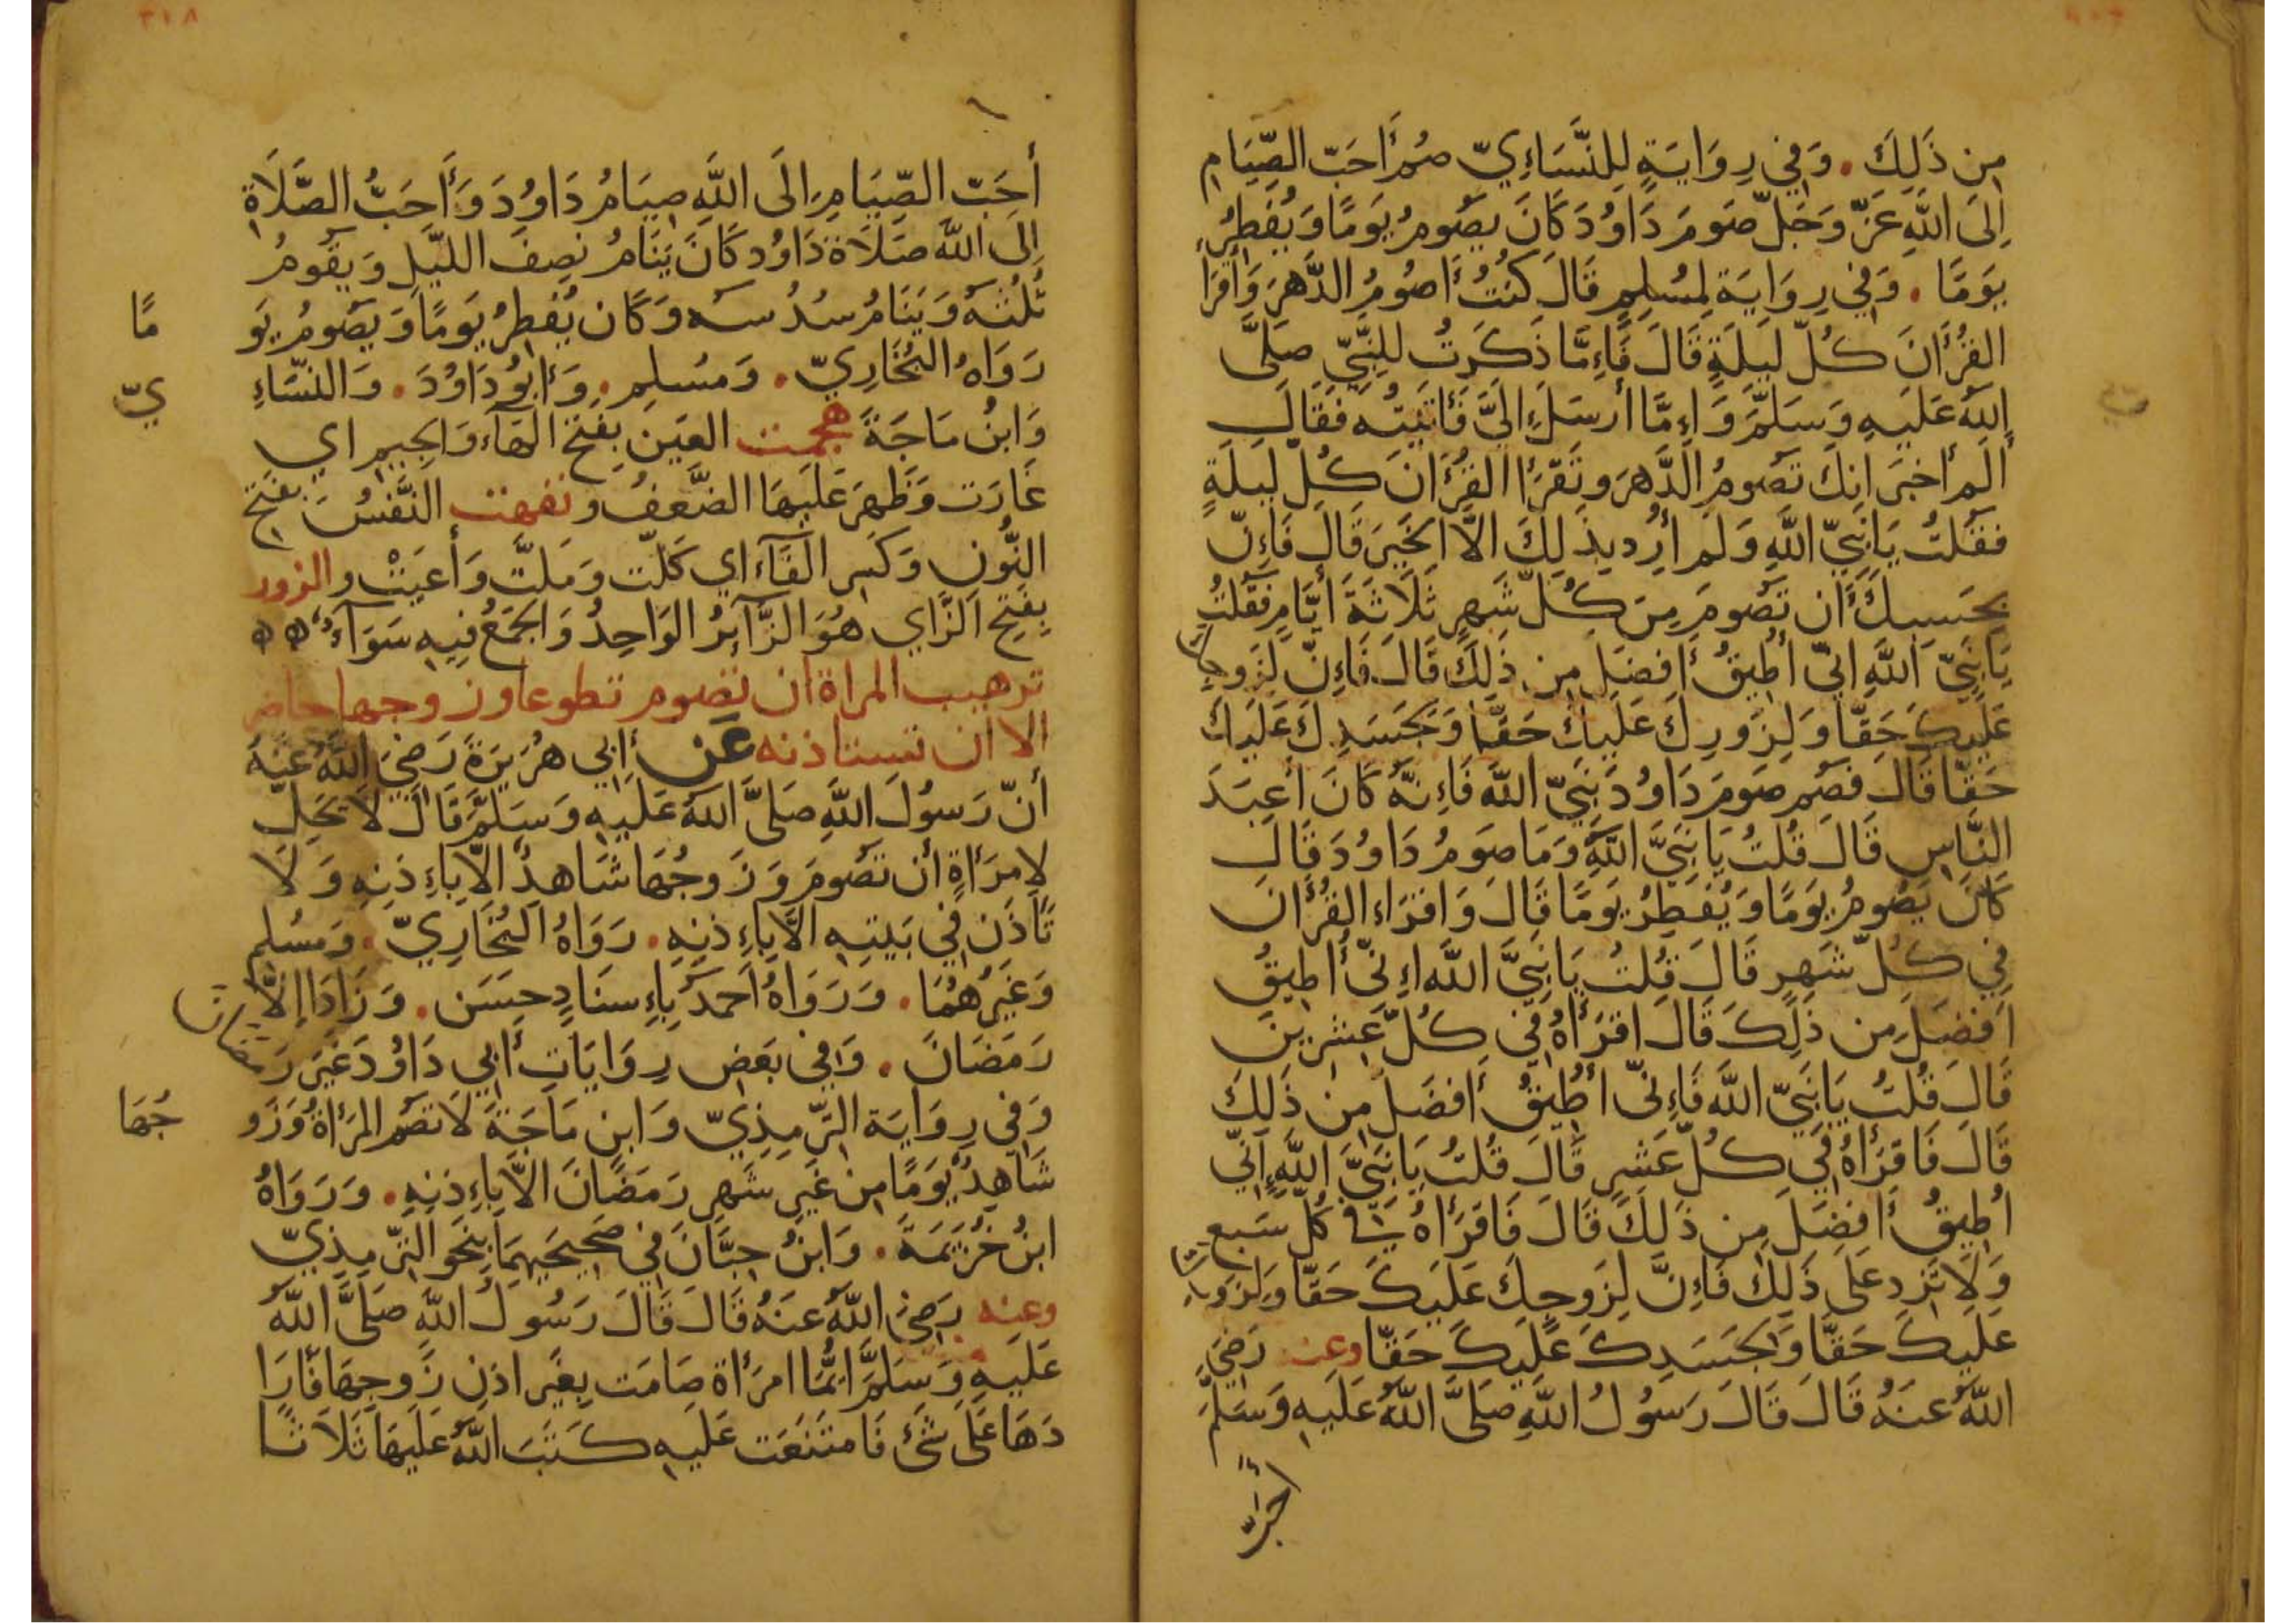 مِن ذَلِكَ . وَفِي رِوَايَةٍ لِلنَّسَاءِيّ صُم أَحَبّ الصِّيَامِ
اِلَى اللَّهِ عَزّ وَجَلّ صَومَ دَاوُدَ كَانَ يَصُومُ يَومًا وَيُفطِرُ
يَومًا . وَفِي رِوَايَةٍ لِمُسْلِمٍ قَالَ كُنتُ أَصُومُ الدَّهرَ وَأَقرَأُ
القُرْأَانَ كُلّ لَيلَةٍ قَالَ فَاءِمَّا ذَكَرتُ لِلنَّبِيّ صَلَّى
اللهُ عَلَيهِ وَسَلَّمَ وَاءِمَّا أرسَلَ اِلَيَّ فَأَتَيتُه فَقَالَ
أَلَم أخبَر انكَ تَصُومُ الدَّهرَ وتَقرَأ القُرْأَانَ كُلّ لَيلَةٍ
فقُلتُ يَا نَبِيّ اللَّهِ وَلَم أرِد بِذَلِكَ الاَّ الخَيرَ قَالَ فَاءِنّ
بِحَسبِكَ أَن تَصُومَ مِن كُلّ شَهرٍ ثَلَاثَةَ أيَّامٍ فَقُلتُ
يَا نَبِيّ اللَّهِ اِنّي أُطِيقُ أفضَلَ مِن ذَلِكَ قَالَ فَاءِنّ لِزَوجِكَ
عَلَيكَ حَقًّا وَلِزَورِكَ عَلَيكَ حَقًّا وَلِجَسَدِكَ عَلَيكَ
حَقًّا قَالَ فَصُم صَومَ دَاوُدَ نَبِيّ اللَّه فَاءِنَّهُ كَانَ أعبَدَ
النَّاسِ قَالَ قُلتُ يَا نَبِيَّ اللَّهِ وَمَا صَومُ دَاوُدَ قَالَ
كَانَ يَصُومُ يَومًا وَيُفطِرُ يَومًا قَالَ وَاقرَاءِ القُرْأَانَ
فِي كُلّ شَهرٍ قَالَ قُلتُ يَا نَبِيَّ اللَّه اءِنّي أُطِيقُ
افضَلَ مِن ذَلِكَ قَالَ اقرَأهُ فِي كُلّ عِشرِينَ
قَالَ قُلتُ يَا نَبِيّ اللَّه فَاءِنّي أُطِيقُ أَفضَلَ مِن ذَلِكَ
قَالَ فَاقرَأهُ فِي كُلّ عَشرٍ قَالَ قُلتُ يَا نَبِيَّ اللَّهِ اِنّي
اُطِيقُ أَفضَلَ مِن ذَلِكَ قَالَ فَاقرَأهُ فِي كُلّ سَبعٍ
وَلَا تَزِد عَلَى ذَلِكَ فَاءِنَّ لِزَوجِكَ عَلَيكَ حَقًّا وَلِزَورِكَ
عَلَيكَ حَقًّا وَلِجَسَدِكَ عَلَيكَ حَقًّا وعنه رَضِيَ
اللَّهُ عَنهُ قَالَ قَالَ رَسُولُ اللَّهِ صَلَّى اللَّهُ عَلَيهِ وَسَلَّمَ
أَحَبّ
٣١٨
أَحَبّ الصِّيَامِ اِلَى اللَّهِ صِيَامُ دَاوُدَ وَأَحَبُّ الصَّلَاةِ
اِلَى اللَّه صَلَاةُ دَاوُد كَانَ يَنَامُ نِصفَ اللَّيلِ وَيَقُومُ
ثُلُثَهُ وَيَنَامُ سُدُسَه وَكَان يُفطِرُ يَومًا وَيَصُومُ يَومًا
رَوَاهُ البُخَارِيّ . وَمُسْلِم . وَأَبُو دَاوُدَ . وَالنَّسَاءِيّ
وَابنُ مَاجَةَ هجمت العَين بِفَتحِ الهَآءِ وَالجِيمِ اي
غَارَت وَظَهَرَ عَلَيهَا الضَّعفُ و نفهت النَّفسُ بِفَتحِ
النُّونِ وَكَسرِ الفَآءِ اي كَلّت وَمَلّتَ وَأَعيَتْ و الزور
بِفَتحِ الزَّاي هُوَ الزَّآئِرُ الوَاحِدُ وَالجَمعُ فِيهِ سَوَآءٌ
ترهيب المراة ان تصوم تطوعا وزوجها حاضر
الا ان تستاذنه عَن أبِي هُرَيرَةَ رَضِيَ اللَّهُ عَنهُ
أنّ رَسُولَ اللَّهِ صَلَّى اللهُ عَلَيهِ وَسَلَّمَ قَالَ لَا يَحِلّ
لِامرَأةٍ أن تَصُومَ وَزَوجُهَا شَاهِدٌ الاَّ بِاءِذنِهِ وَلَا
تَأذَن فِي بَيتِهِ الاَّ بِاءِذنِهِ . رَوَاهُ البُخَارِيّ . وَمُسْلِم
وَغَيرُهُمَا . وَرَوَاهُ أحمَد بِاءِسنَادٍ حَسَن . وَزَادَ اِلاَّ
رَمَضَانَ . وَفِي بَعضِ رِوَايَاتِ أَبِي دَاوُدَ غَيرَ رَمَضَانَ
وَفِي رِوَايَة التِّرمِذِيّ وَابنِ مَاجَةَ لَا تَصُمِ المَرأَةُ وَزَوجُهَا
شَاهِدٌ يَومًا مِن غَيرِ شَهرِ رَمَضَانَ الاَّ بِاءِذنِهِ . وَرَوَاهُ
ابنُ خُزَيمَةَ . وَابنُ حِبَّانَ فِي صَحِيحَيهِمَا بِنَحوِ التِّرمِذِيّ
وعنه رَضِيَ اللَّهُ عَنهُ قَالَ قَالَ رَسُولُ اللَّهِ صَلَّى اللَّهُ
عَلَيهِ وَسَلَّمَ ايُّمَا امرَأة صَامَت بِغَيرِ اذنِ زَوجِهَا فَأَرَا
دَهَا عَلَى شَيْءٍ فَامتَنَعَت عَلَيهِ كَتَبَ اللَّهُ عَلَيهَا ثَلَاثًا